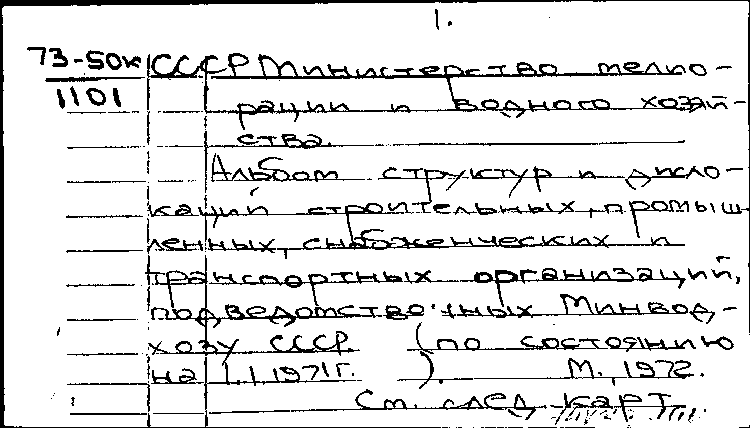 1.
73-50к СССР Министерство мелио-
1101 рации и водного хозяй-
ства.
Альбом структур и дисло-
каций строительных, промыш-
ленных, снабженческих и
транспортных организаций,
подведомственных Минвод-
хозу СССР (по состоянию
на 1.I.1971г. ). М., 1972.
См. след. карт